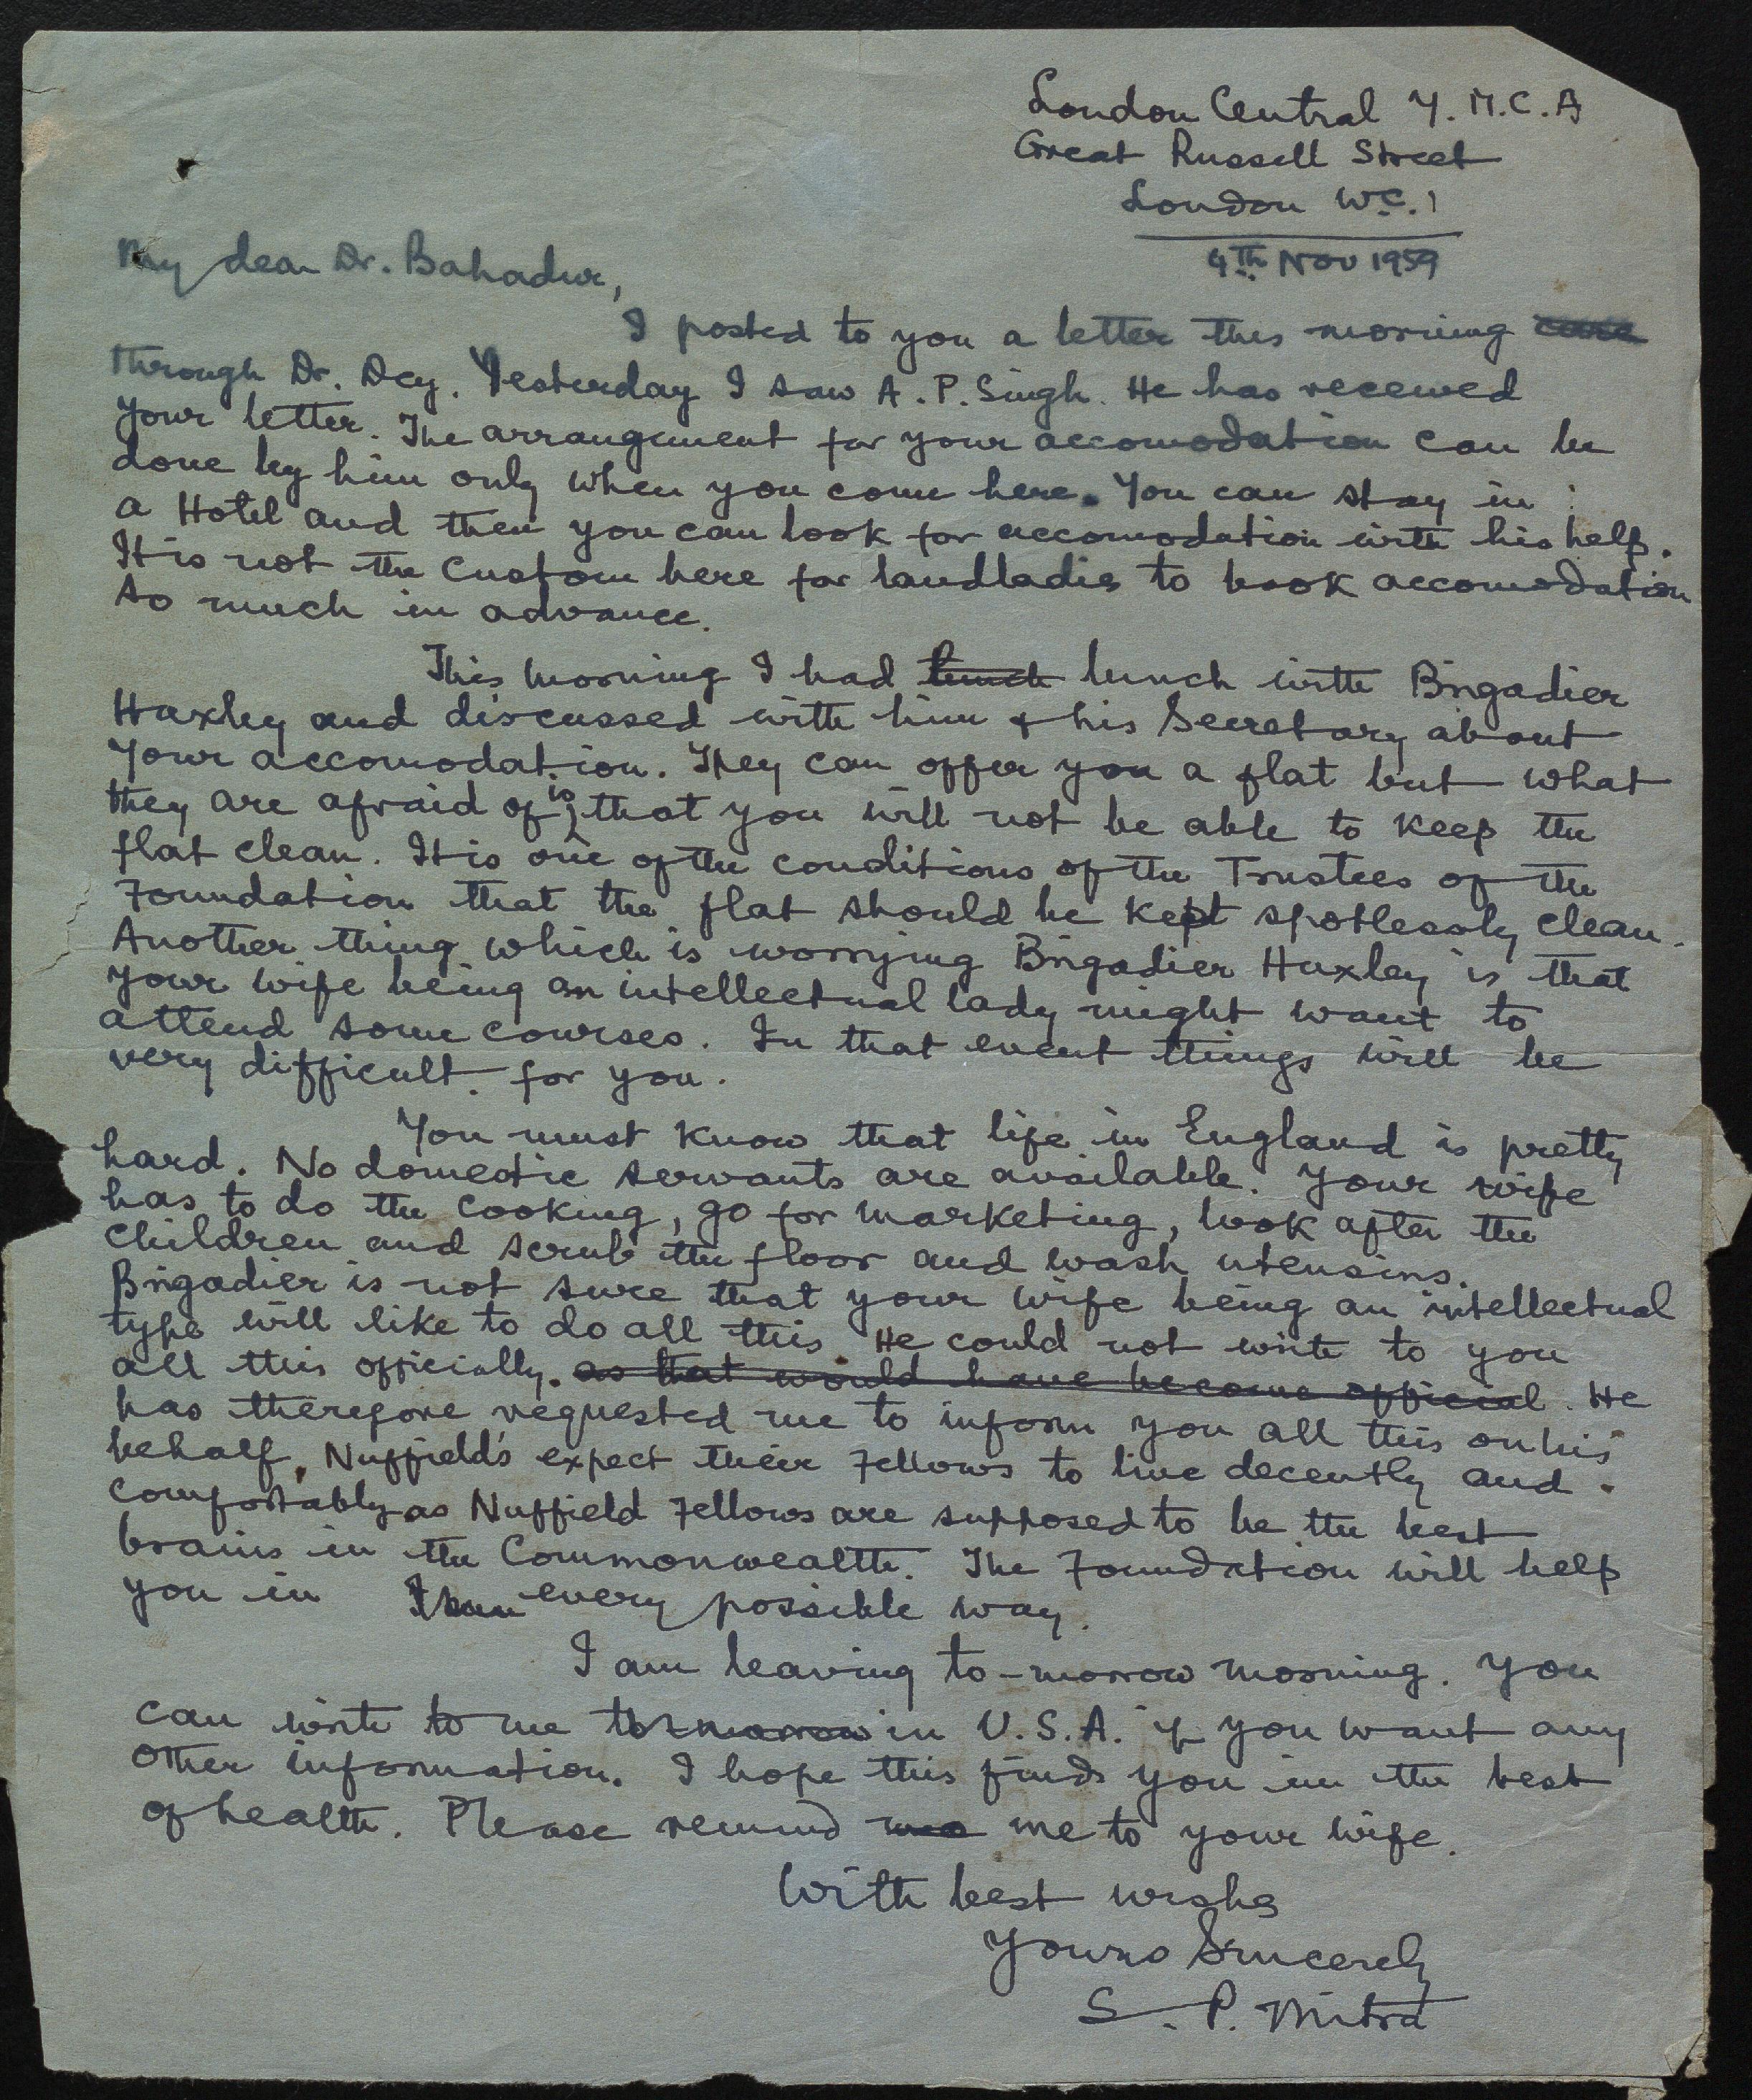 London Central Y.M.C.A
Great Russell Street
London W.C.1
4th Nov 1959
My dear Dr. Bahadur,
I posted to you a letter this morning
through Dr. Dey. Yesterday I saw A.P. Singh. He has received
your letter. The arrangement for your accomodation can be
done by him only when you come here. You can stay in
a Hotel and then you can look for accomodation with his help.
It is not the custom here for landladies to book accomodation
so much in advance.
This morning I had lunch lunch with Brigadier
Haxley and discussed with him & his Secretary about
Your accomodation. They can offer you a flat but what
they are afraid of is that you will not be able to keep the
flat clean. It is one of the conditions of the Trustees of the
Foundation that the flat should be kept spotlessly clean.
Another thing which is worrying Brigadier Haxley is that
your wife being an intellectual lady might want to
attend some courses. In that event things will be
very difficult for you.
You must know that life in England is pretty
hard. No domestic servants are available. Your wife
has to do the cooking, go for marketing, look after the
children and scrub the floor and wash utensins.
Brigadier is not sure that your wife being an intellectual
type will like to do all this. He could not write to you
all this officially. as that would have become official. He
has therefore requested me to inform you all this on his
behalf. Nuffield's expect their Fellows to live decently and
comfortably as Nuffield Fellows are supposed to be the best
brains in the Commonwealth. The Foundation will help
you in every possible way.
I am leaving to-morrow morning. You
can write to me tomorrow in U.S.A. if you want any
other information. I hope this finds you in the best
of health. Please remind me to your wife.
With best wishes
Yours Sincerely
S. P. Mitra